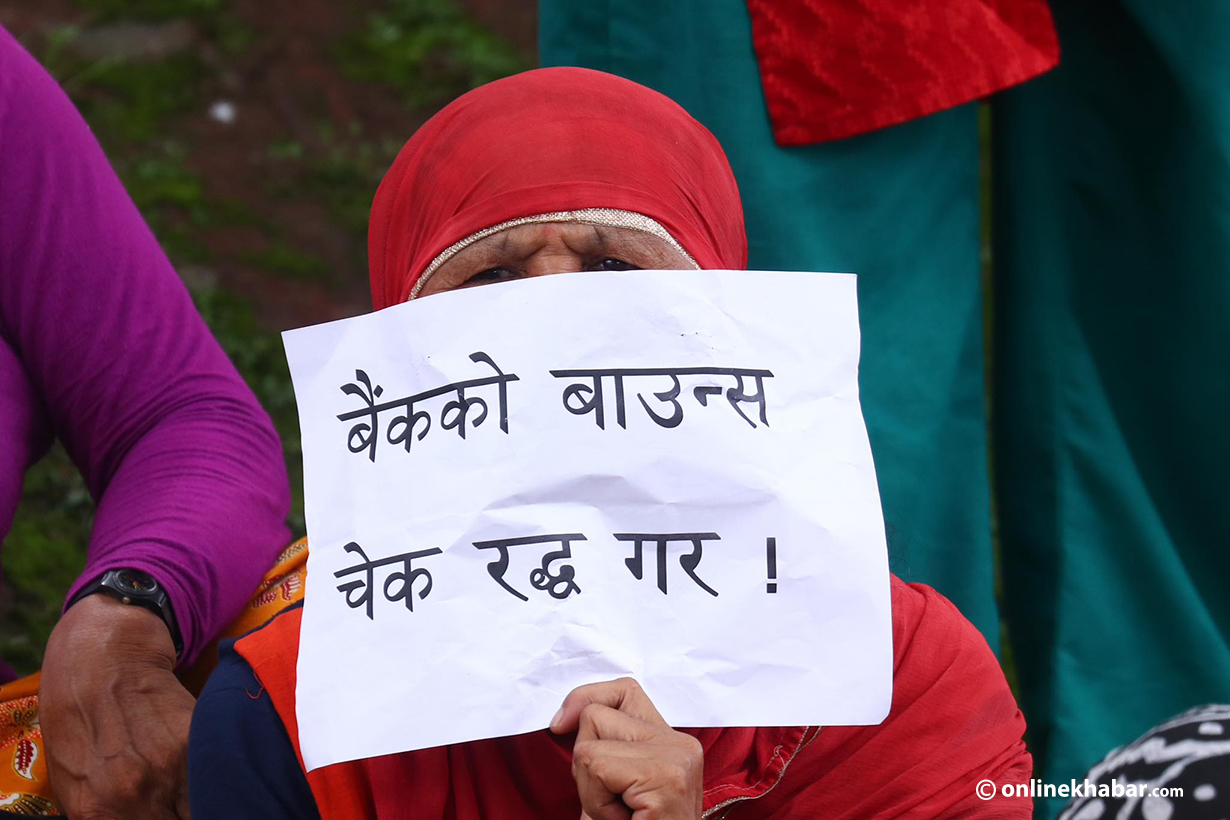 बैंकको बाउन्स
चेक रद्ध गर !
© onlinekhabar.com